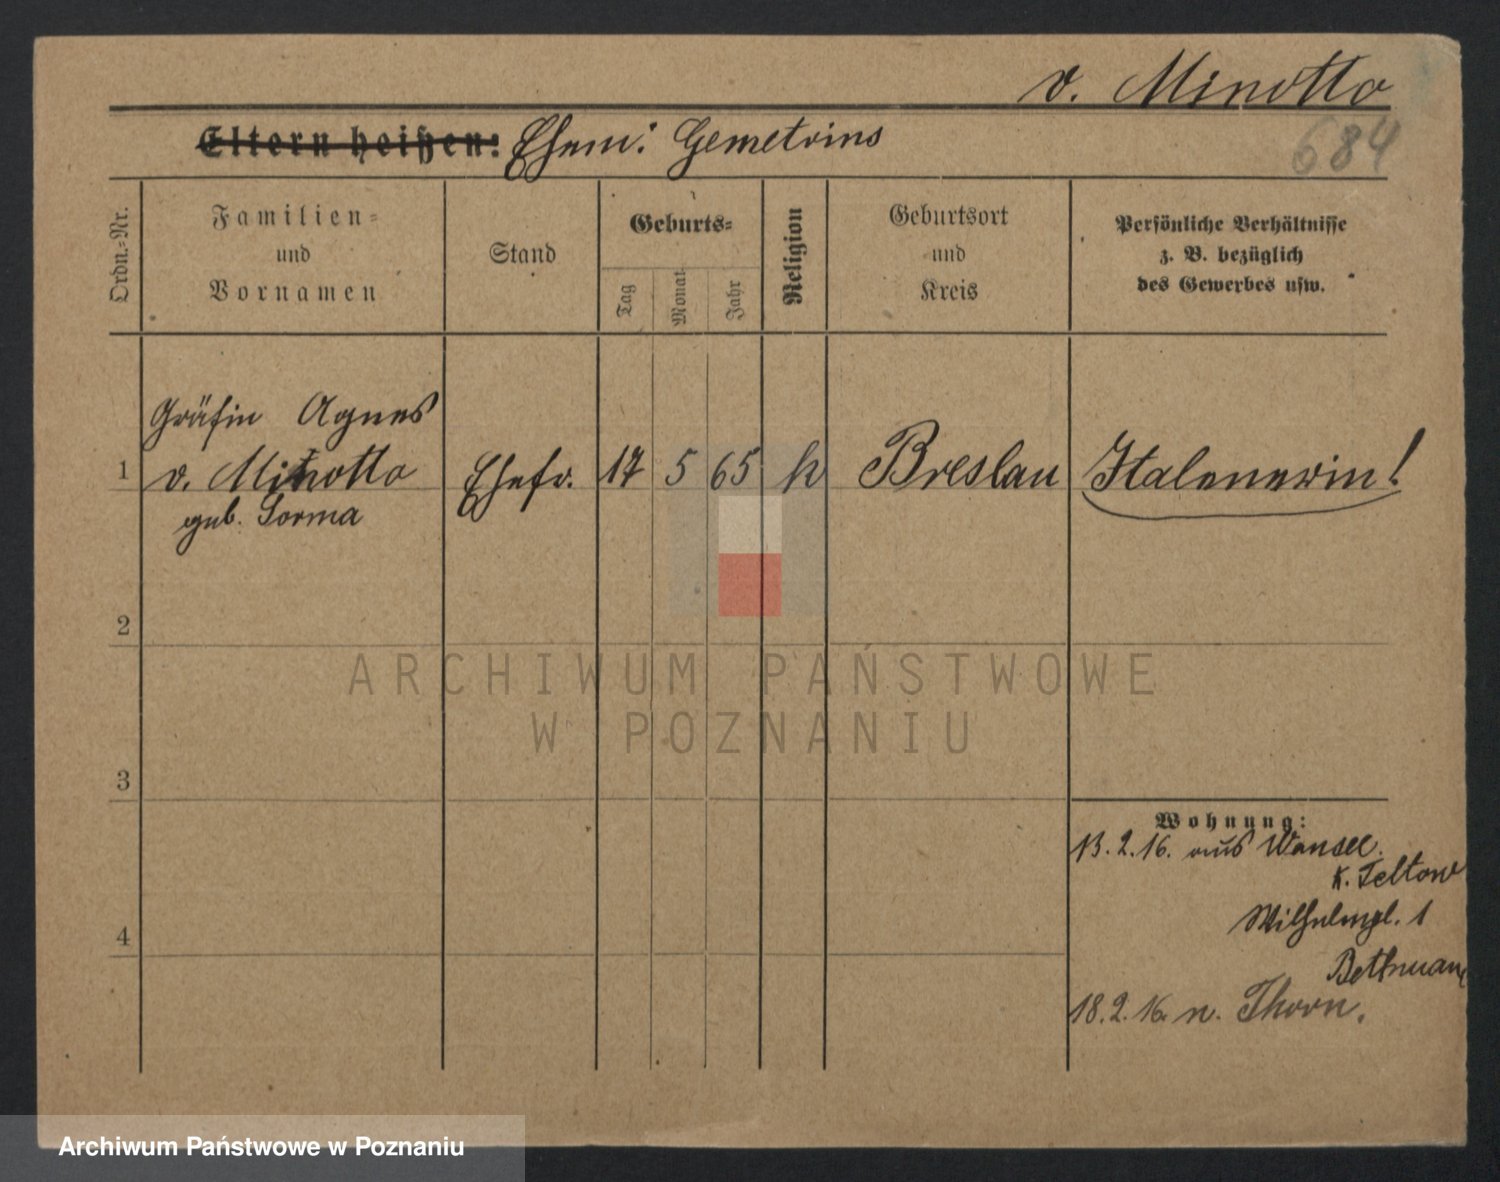 v. Minotto
684
Eltern heißen: Ehem: Gemetrius
Ordn.=Nr.
Familien=
und
Vornamen
Stand
Geburts=
Tag
Monat
Jahr
Religion
Geburtsort
und
Kreis
Persönliche Verhältnisse
z. B. bezüglich
des Gewerbes usw.
Gräfin Agnes
1 v. Minotto Ehefr. 17 5 65 k Breslau Italenerin!
geb. Sorma
2
ARCHIWUM PAŃSTWOWE
W POZNANIU
3
Wohnung:
13. 2. 16. aus Wansee.
K. Teltow
4
Wilhelmpl. 1
18. 2. 16. n. Thorn.
Archiwum Państwowe w Poznaniu